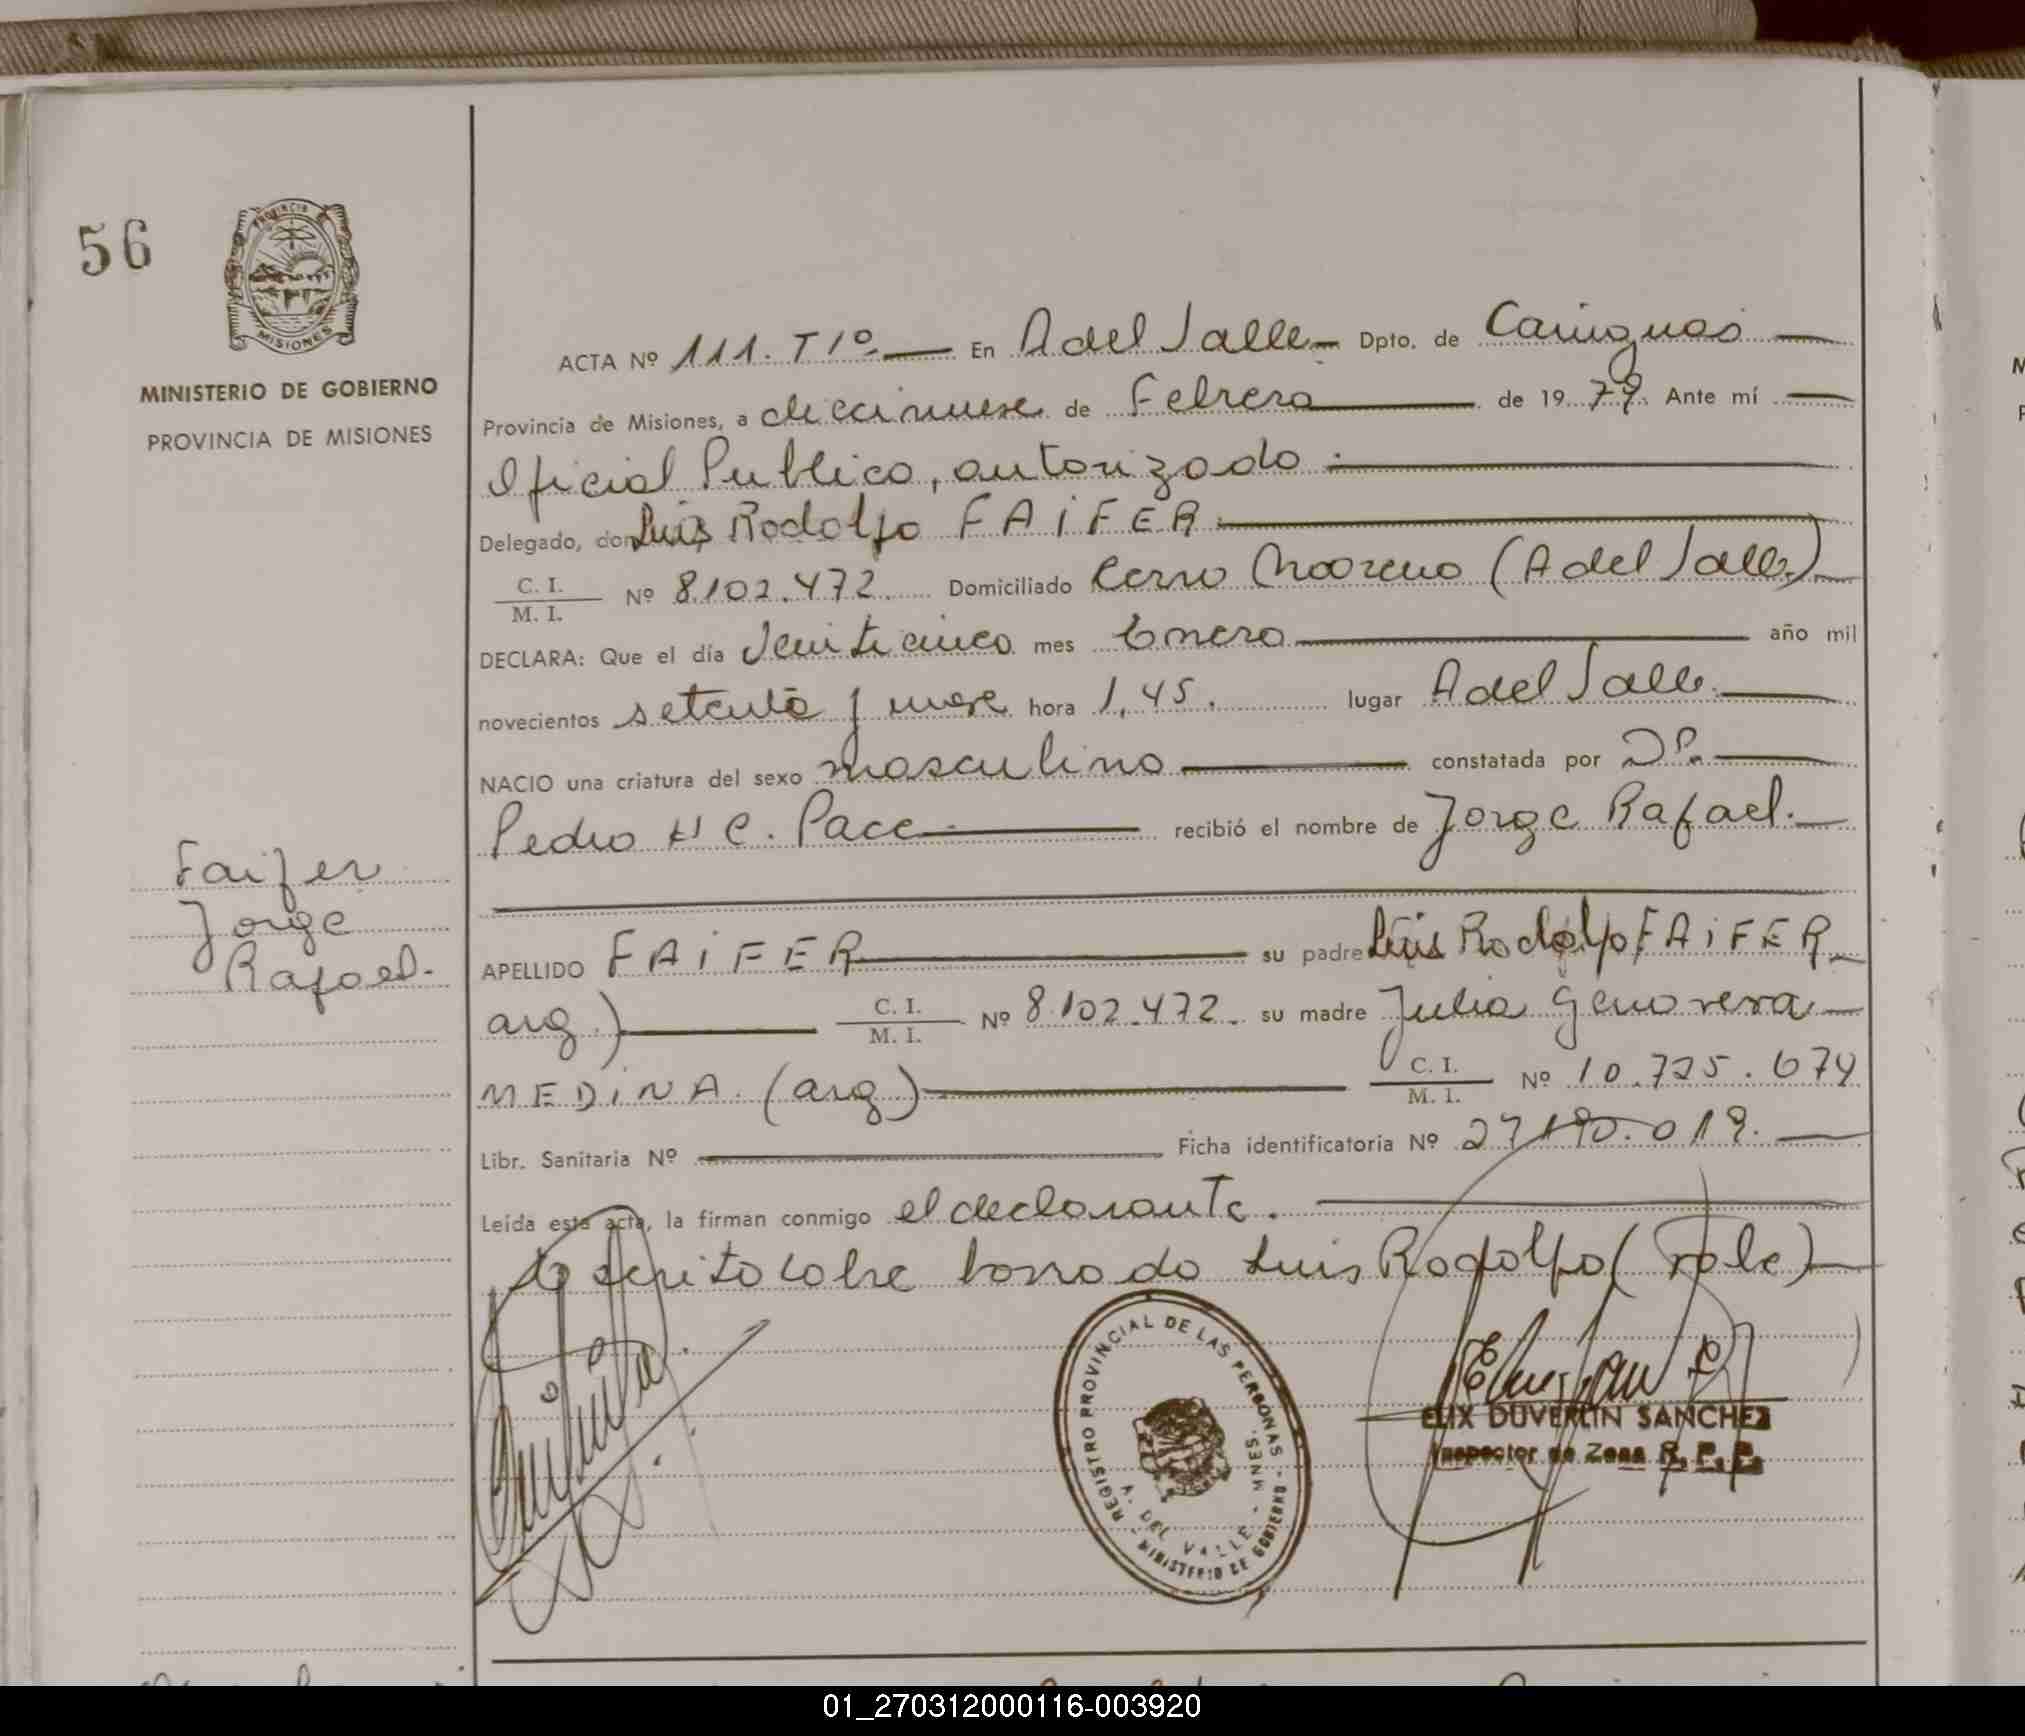 56
PROVINCIA
MISIONES
MINISTERIO DE GOBIERNO
PROVINCIA DE MISIONES
ACTA Nº 111. T 1º En A del Valle Dpto. de Cainguas
Provincia de Misiones, a diecinueve de Febrero de 19 79. Ante mí
Oficial Publico, autorizado
Delegado, don Luis Rodolfo FAiFER
C. I.
M. I. Nº 8.102.472. Domiciliado Cerro Moreno (A del Valle)
DECLARA: Que el día Veinticinco mes Enero año mil
novecientos setenta y nueve hora 1,45. lugar A del Valle
NACIO una criatura del sexo masculino constatada por Dr.
Pedro H C. Pace recibió el nombre de Jorge Rafael.
Faifer
Jorge
Rafael.
APELLIDO FAiFER su padre Luis Rodolfo FAiFER
arg.) C. I.
M. I. Nº 8.102.472. su madre Julia Genoveva
MEDiNA (arg) C. I.
M. I. Nº 10.725.674
Libr. Sanitaria Nº Ficha identificatoria Nº 27190.019.
Leída esta acta, la firman conmigo el declarante.
escrito sobre borrado Luis Rodolfo (Vale)
REGISTRO PROVINCIAL DE LAS PERSONAS - MNES.
A. DEL VALLE
MINISTERIO DE GOBIERNO
ELIX DUVERLIN SANCHEZ
Inspector de Zona R. P. P.
01_270312000116-003920